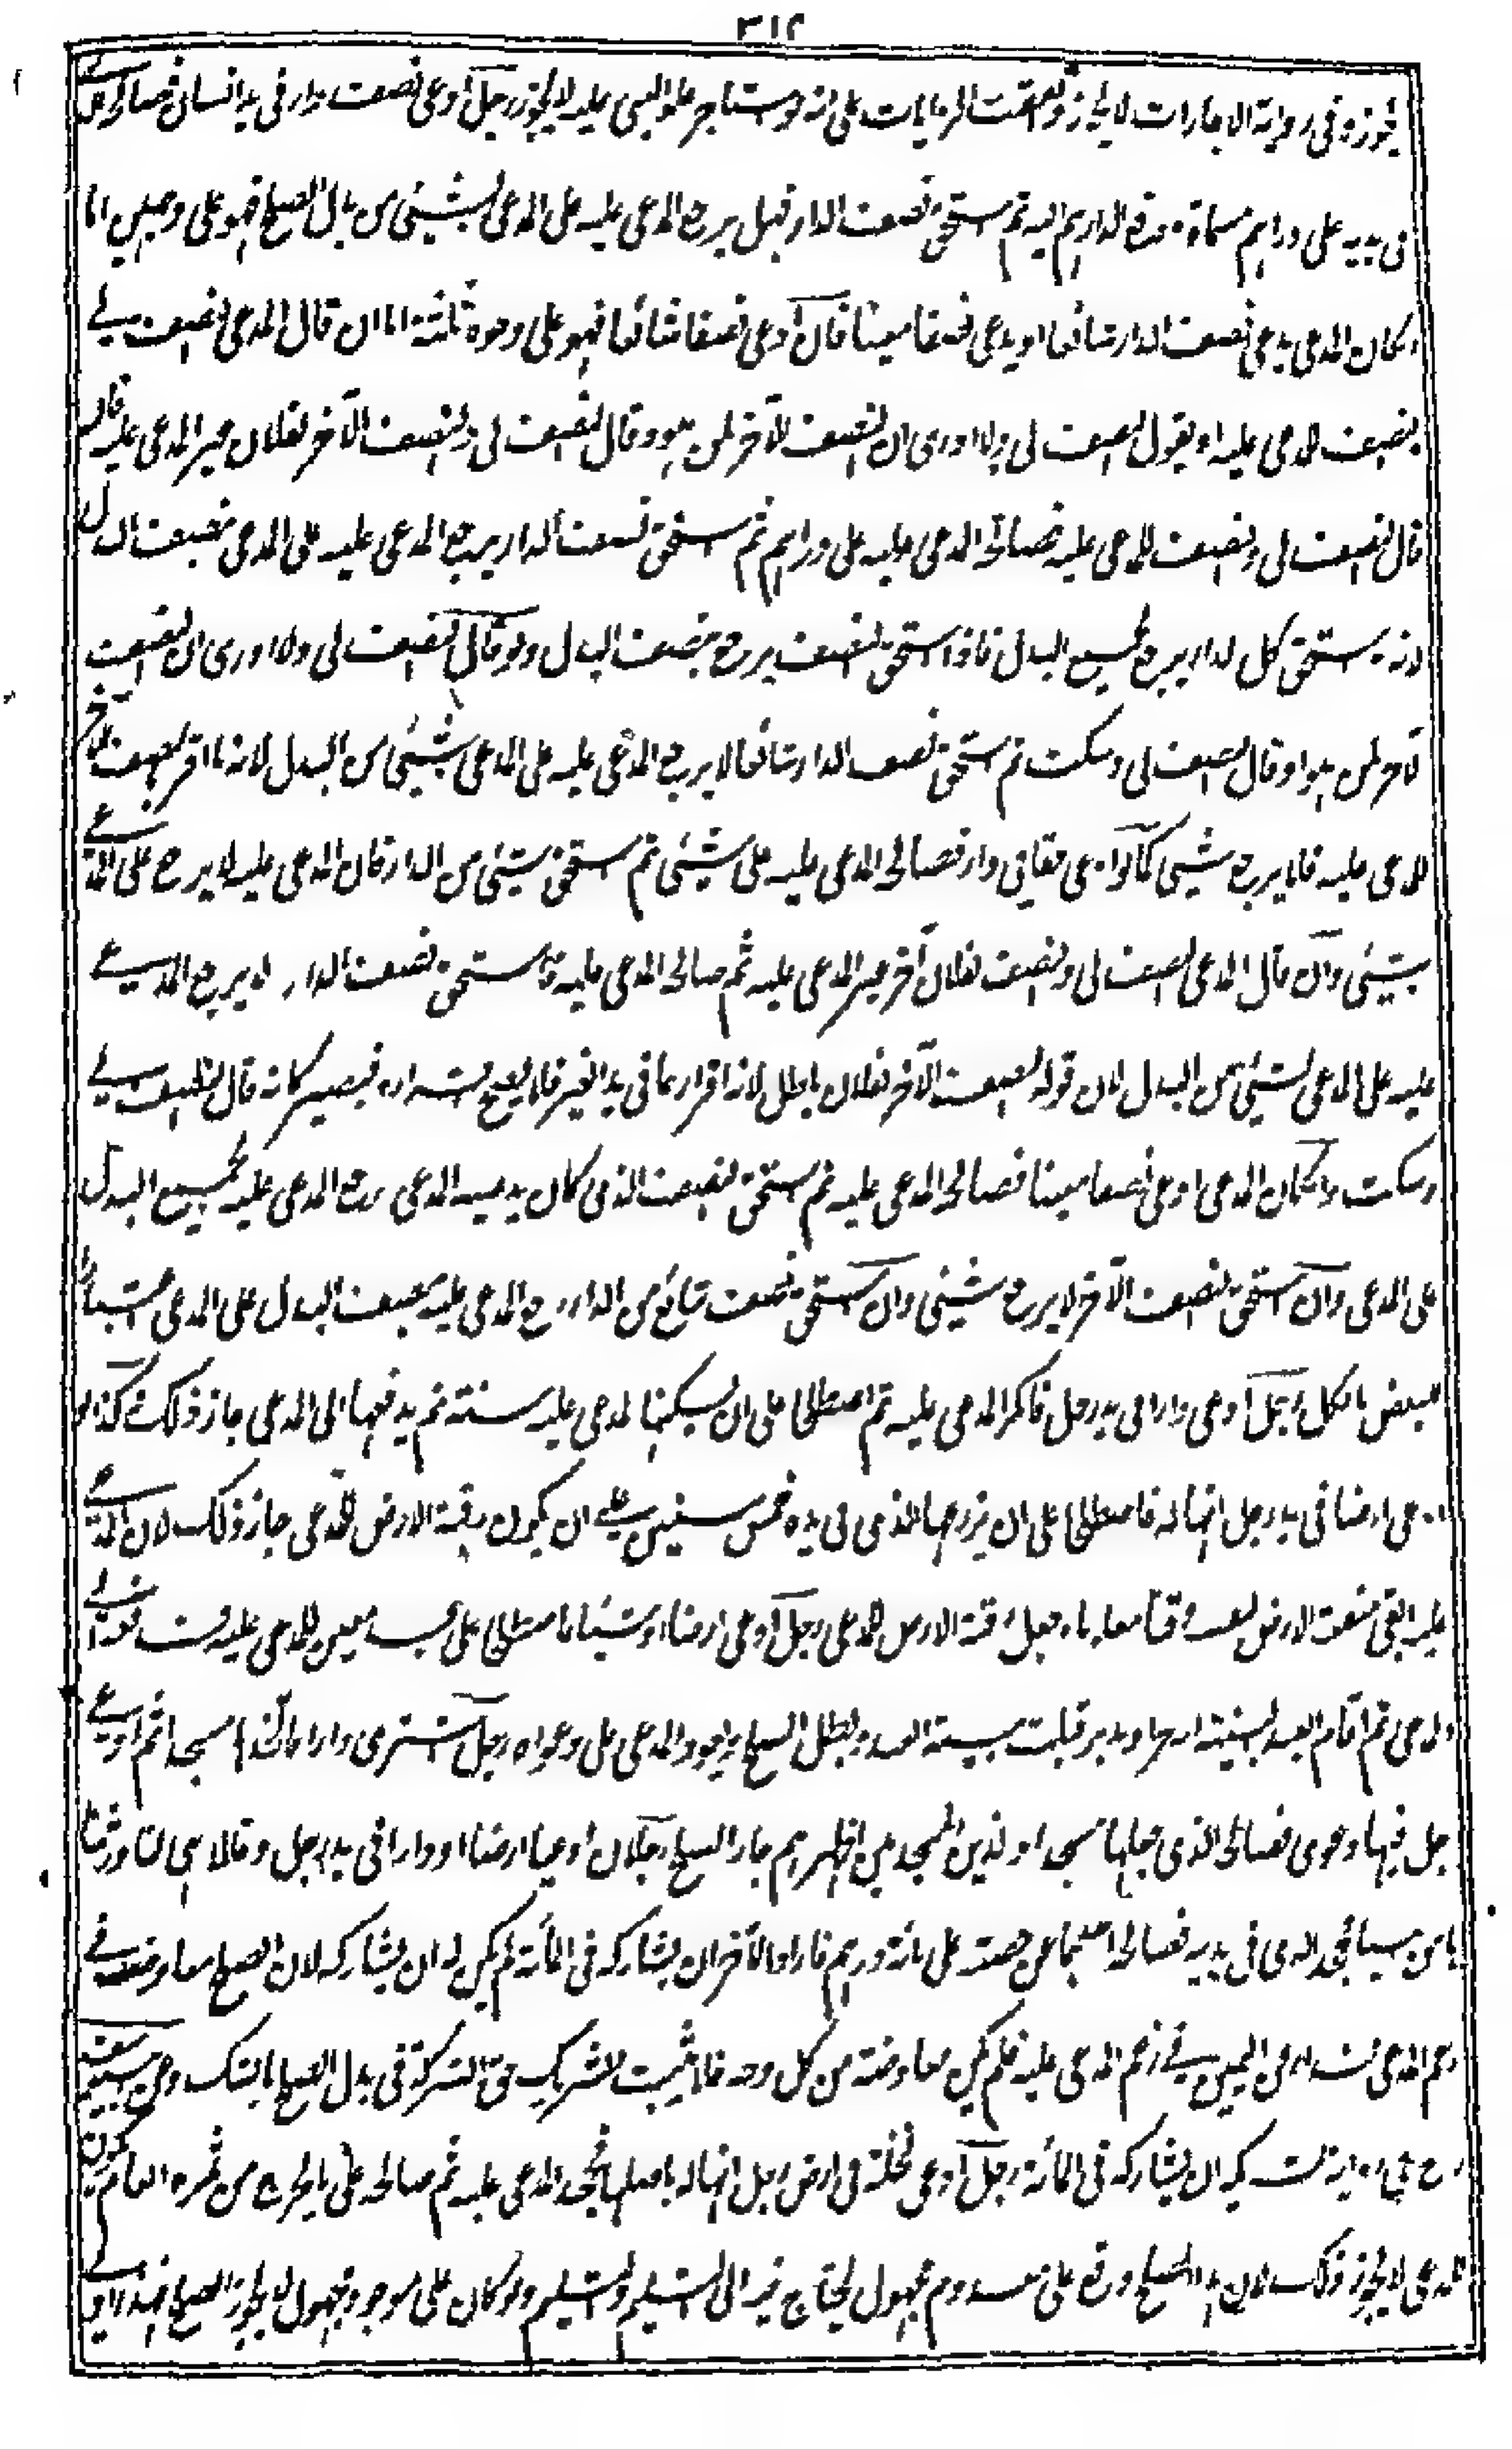 ٣١٢
يجوز وفى رواية الاجارات لا يجوز واتفقت الروايات على انه لو استاجر علوا ليبنى عليه لا يجوز رجل ادعى نصف دار فى يد انسان فصالحه الذى
فى يديه على دراهم مسماة ودفع الدراهم اليه ثم استحق نصف الدار قبل يرجع المدعى عليه على المدعى بشيئ من بدل الصلح فهو على وجهين اما
ان كان المدعى يدعى نصف الدار شائعا او يدعى نصفا معينا فان ادعى نصفا شائعا فهو على وجوه ثلثة اما ان قال المدعى النصف لى
والنصف للمدعى عليه او يقول النصف لى ولا ادرى ان النصف الآخر لمن هو وقال النصف لى والنصف الآخر لفلان غير المدعى عليه فان
قال النصف لى والنصف للمدعى عليه فصالحه المدعى عليه على دراهم ثم استحق نصف الدار يرجع المدعى عليه على المدعى بنصف البدل
لانه لو استحق كل الدار يرجع بجميع البدل فاذا استحق النصف يرجع بنصف البدل ولو قال النصف لى ولا ادرى ان النصف
الآخر لمن هو او قال النصف لى وسكت ثم استحق نصف الدار شائعا لا يرجع المدعى عليه على المدعى بشيئ من البدل لانه ما اقر بالنصف الآخر
للمدعى عليه فلا يرجع بشيئ كما لو ادعى حقا فى دار فصالحه المدعى عليه على شيئ ثم استحق شيئ من الدار فان المدعى عليه لا يرجع على المدعى
بشيئ وان قال المدعى النصف لى والنصف لفلان آخر غير المدعى عليه ثم صالحه المدعى عليه ثم استحق نصف الدار لا يرجع المدعى
عليه على المدعى بشيئ من البدل لان قوله النصف الآخر لفلان باطل لانه اقرار بما فى يد الغير فلا يصح اقراره فيصير كانه قال النصف لى
وسكت وان كان المدعى ادعى نصفا معينا فصالحه المدعى عليه ثم استحق النصف الذى كان يدعيه المدعى رجع المدعى عليه بجميع البدل
على المدعى وان استحق النصف الآخر لا يرجع بشيئ وان استحق نصف شائع من الدار رجع المدعى عليه بنصف البدل على المدعى اعتبارا
للبعض بالكل رجل ادعى دارا فى يد رجل فانكر المدعى عليه ثم اصطلحا على ان يسكنها المدعى عليه سنة ثم يدفعها الى المدعى جاز ذلك وكذا لو
ادعى ارضا فى يد رجل انها له فاصطلحا على ان يزرعها الذى فى يده خمس سنين على ان يكون رقبة الارض للمدعى جاز ذلك لان المدعى
عليه ابقى منفعة الارض لنفسه وقتا معلوما وجعل رقبة الارض للمدعى رجل ادعى ارضا او شيئا فاصطلحا على عبد معين للمدعى عليه
المدعى ثم اقام العبد البينة انه حر او مدبر قبلت بينة العبد ويبطل الصلح ويعود المدعى على دعواه رجل اشترى دارا فاتخذها مسجدا ثم ادعى
رجل فيها دعوى فصالحه الذى جعلها مسجدا او الذين المسجد بين اظهرهم جاز الصلح رجلان ادعيا ارضا او دارا فى يد رجل وقالا هى لنا ورثناها
من ابينا فجحد الذى فى يديه فصالح احدهما عن حصته على مائة درهم فاراد الآخر ان يشاركه فى المائة لم يكن له ان يشاركه لان الصلح معاوضة فى
زعم المدعى فداء عن اليمين فى زعم المدعى عليه فلم يكن معاوضة من كل وجه فلا يثبت للشريك حق الشركة فى بدل الصلح بالشك وعن ابى يوسف
رح فى رواية ان يشاركه فى المائة رجل ادعى نخلة فى ارض رجل انها له باصلها فجحد المدعى عليه ثم صالحه على ما يخرج من ثمره العام يكون
للمدعى لا يجوز ذلك لان الصلح وقع على معدوم مجهول يحتاج فيه الى التسليم والتسليم ولو كان على موجود مجهول لا يجوز الصلح